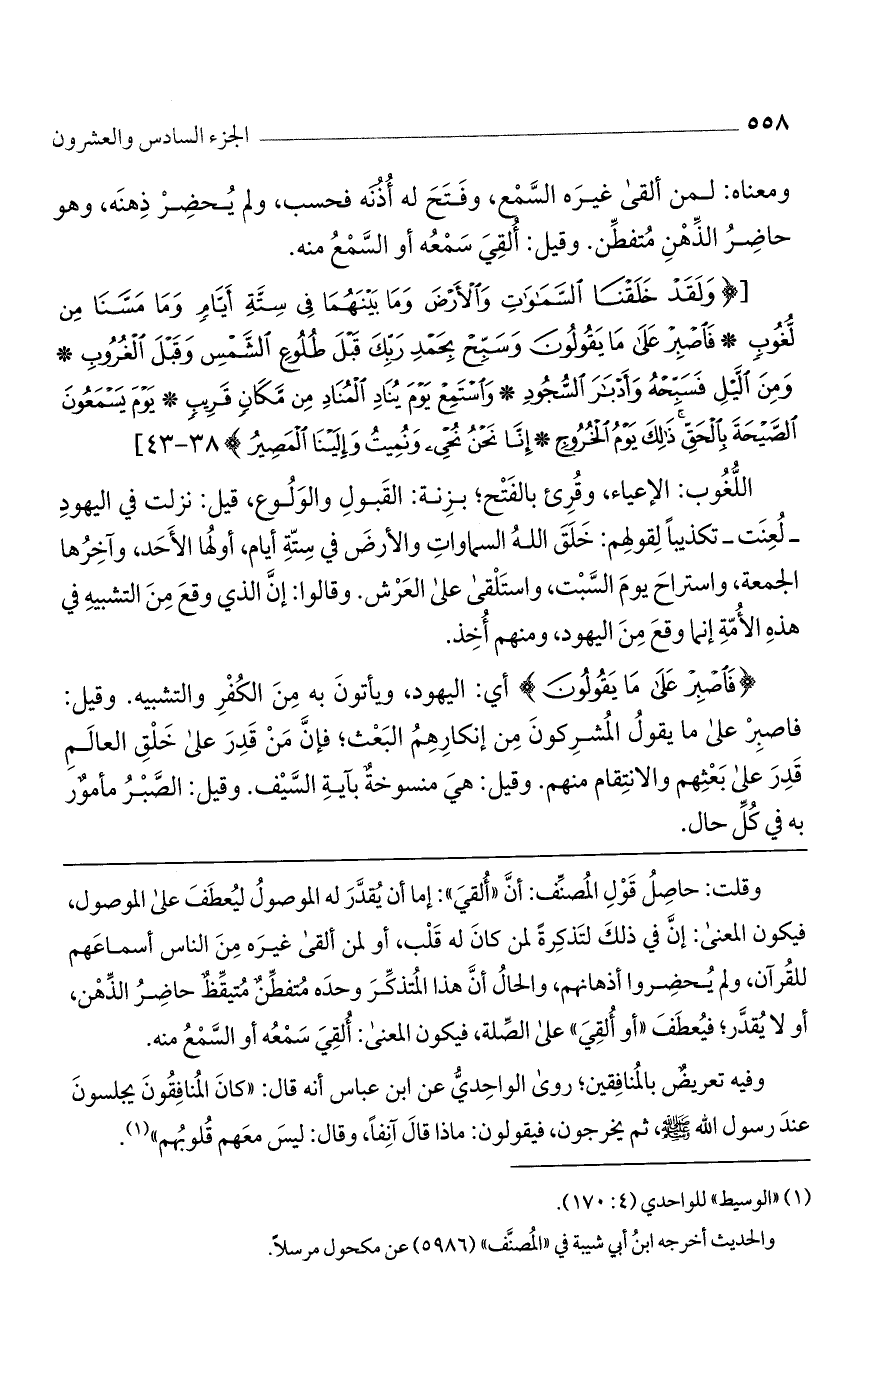 ٥٥٨ الجزء السادس والعشرون
ومعناه: لـمن ألقىٰ غيـرَه السَّمْع، وفَـتَحَ له أُذُنَه فحسب، ولم يُـحضِـرْ ذِهنَه، وهو
حاضِـرُ الذِّهْنِ مُتفطِّن. وقيل: أُلقِيَ سَمْعُه أو السَّمْعُ منه.
[﴿ وَلَقَدْ خَلَقْنَا ٱلسَّمَٰوَٰتِ وَٱلْأَرْضَ وَمَا بَيْنَهُمَا فِى سِتَّةِ أَيَّامٍ وَمَا مَسَّنَا مِن
لُّغُوبٍ * فَٱصْبِرْ عَلَىٰ مَا يَقُولُونَ وَسَبِّحْ بِحَمْدِ رَبِّكَ قَبْلَ طُلُوعِ ٱلشَّمْسِ وَقَبْلَ ٱلْغُرُوبِ *
وَمِنَ ٱلَّيْلِ فَسَبِّحْهُ وَأَدْبَٰرَ ٱلسُّجُودِ * وَٱسْتَمِعْ يَوْمَ يُنَادِ ٱلْمُنَادِ مِن مَّكَانٍ قَرِيبٍ * يَوْمَ يَسْمَعُونَ
ٱلصَّيْحَةَ بِٱلْحَقِّ ۚ ذَٰلِكَ يَوْمُ ٱلْخُرُوجِ * إِنَّا نَحْنُ نُحْىِۦ وَنُمِيتُ وَإِلَيْنَا ٱلْمَصِيرُ ﴾ ٣٨-٤٣]
اللُّغُوب: الإعياء، وقُرِئ بالفَتْح؛ بـزِنـة: القَبـولِ والوَلُـوع، قيل: نزلت في اليهودِ
ـ لُعِنَت ـ تكذيباً لِقولِهم: خَلَقَ اللـهُ السماواتِ والأرضَ في سِتّةِ أيام، أولُها الأَحَد، وآخِرُها
الجمعة، واستراحَ يومَ السَّبْت، واستَلْقىٰ علىٰ العَرْش. وقالوا: إنَّ الذي وقعَ مِنَ التشبيهِ في
هذهِ الأُمّةِ إنما وقعَ مِنَ اليهود، ومنهم أُخِذ.
﴿فَٱصْبِرْ عَلَىٰ مَا يَقُولُونَ﴾ أي: اليهود، ويأتونَ به مِنَ الكُفْرِ والتشبيه. وقيل:
فاصبِرْ علىٰ ما يقولُ المُشـرِكونَ مِن إنكارِهِمُ البَعْث؛ فإنَّ مَنْ قَدِرَ علىٰ خَلْقِ العالَـمِ
قَدِرَ علىٰ بَعْثِهم والانتِقام منهم. وقيل: هيَ منسوخةٌ بآيـةِ السَّيْف. وقيل: الصَّبْـرُ مأمورٌ
به في كُلِّ حال.
وقلت: حاصِلُ قَوْلِ المُصنِّف: أنَّ «أُلقيَ»: إما أن يُقدَّرَ له الموصولُ ليُعطَفَ علىٰ الموصول،
فيكون المعنىٰ: إنَّ في ذلكَ لتَذكِرةً لمن كانَ له قَلْب، أو لمن ألقىٰ غيـرَه مِنَ الناس أسمـاعَهم
للقُرآن، ولم يُـحضِـروا أذهانهم، والحالُ أنَّ هذا المُتذكِّـرَ وحدَه مُتفطِّنٌ مُتيقِّظٌ حاضِـرُ الذِّهْن،
أو لا يُقدَّر؛ فيُعطَفَ «أو أُلقِيَ» علىٰ الصِّلة، فيكون المعنىٰ: أُلقِيَ سَمْعُه أو السَّمْعُ منه.
وفيه تعريضٌ بالمُنافِقين؛ روىٰ الواحِديُّ عن ابن عباس أنه قال: «كانَ المُنافِقُونَ يجلسونَ
عندَ رسول الله ﷺ، ثم يخرجون، فيقولون: ماذا قالَ آنِفاً، وقال: ليسَ معَهم قُلوبُهم»(١).
(١) «الوسيط» للواحدي (٤: ١٧٠).
والحديث أخرجه ابنُ أبي شيبة في «المُصنَّف» (٥٩٨٦) عن مكحول مرسلاً.